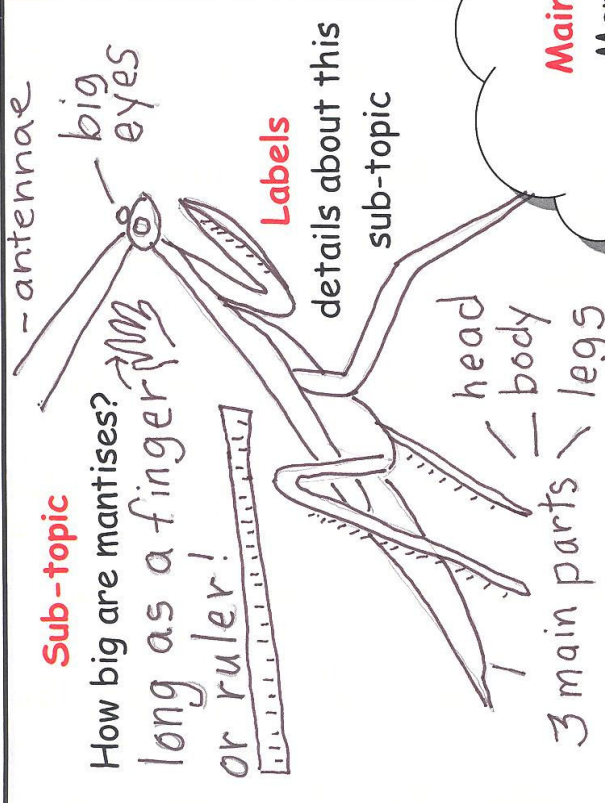 Sub-topic
How big are mantises?
long as a finger
or ruler!
- antennae
big
eyes
Labels
details about this
sub-topic
3 main parts
head
body
legs
Main